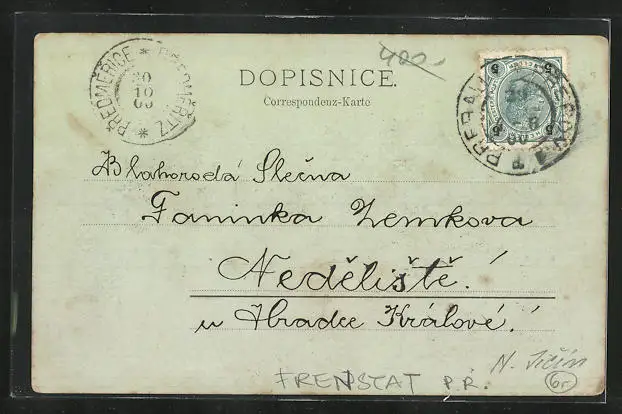 400.-
PŘEDMĚŘICE * PŘEDMĚŘITZ *
20
10
00
DOPISNICE.
Correspondenz-Karte
5
5
5
5
PRERAU
Blahorodá Slečna
Faninka Zemkova
Neděliště!
u Hradce Králové!
N. Jičín
FRENSTAT P.R.
6r